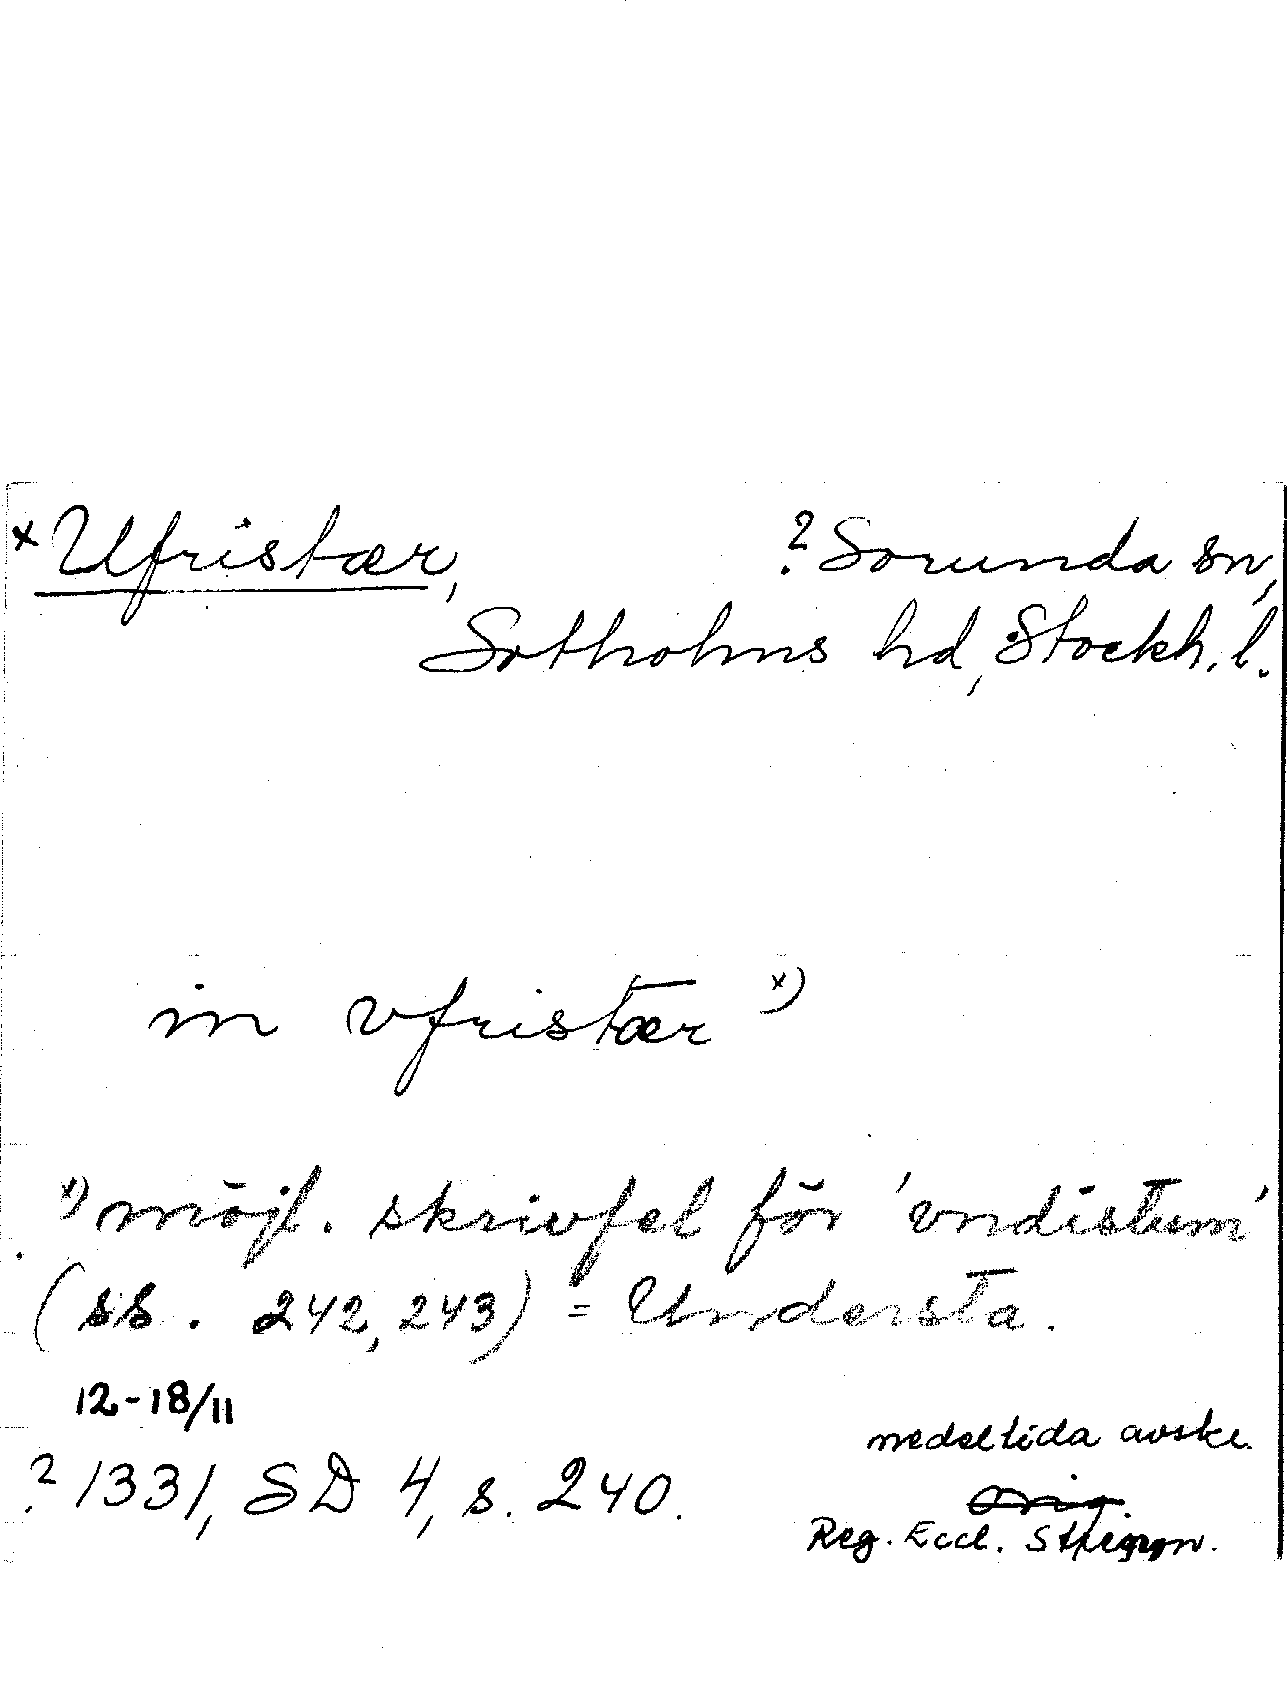 x Ufristær, ? Sorunda sn,
Sotholms hd, Stockh. l.
in vfristær x)
x) möjl. skrivfel för 'vndistum'
(ss. 242, 243) = Understa.
12-18/11
? 1331, SD 4, s. 240.
medeltida avskr.
orig.
Reg. Eccl.